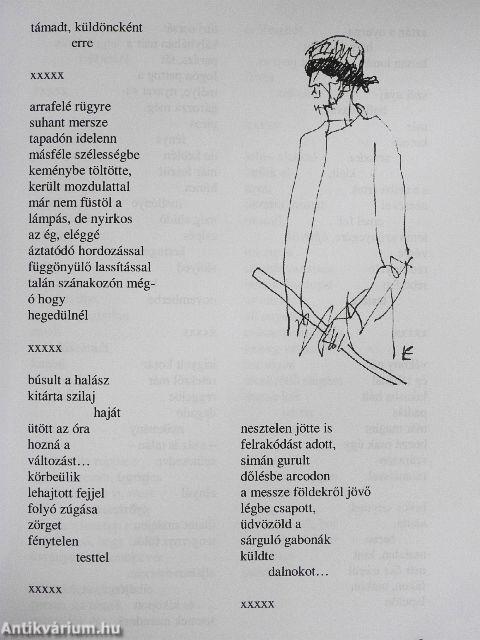 támadt, küldöncként
erre
xxxxx
arrafelé rügyre
suhant mersze
tapadón idelenn
másféle szélességbe
keménybe töltötte,
került mozdulattal
már nem füstöl a
lámpás, de nyirkos
az ég, eléggé
áztatódó hordozással
függönyülő lassítással
talán szánakozón még-
ó hogy
hegedülnél
xxxxx
búsult a halász
kitárta szilaj
haját
ütött az óra
hozná a
változást...
körbeülik
lehajtott fejjel
folyó zúgása
zörget
fénytelen
testtel
xxxxx
E
nesztelen jötte is
felrakódást adott,
simán gurult
dőlésbe arcodon
a messze földekről jövő
légbe csapott,
üdvözöld a
sárguló gabonák
küldte
dalnokot...
xxxxx
Antikvárium.hu